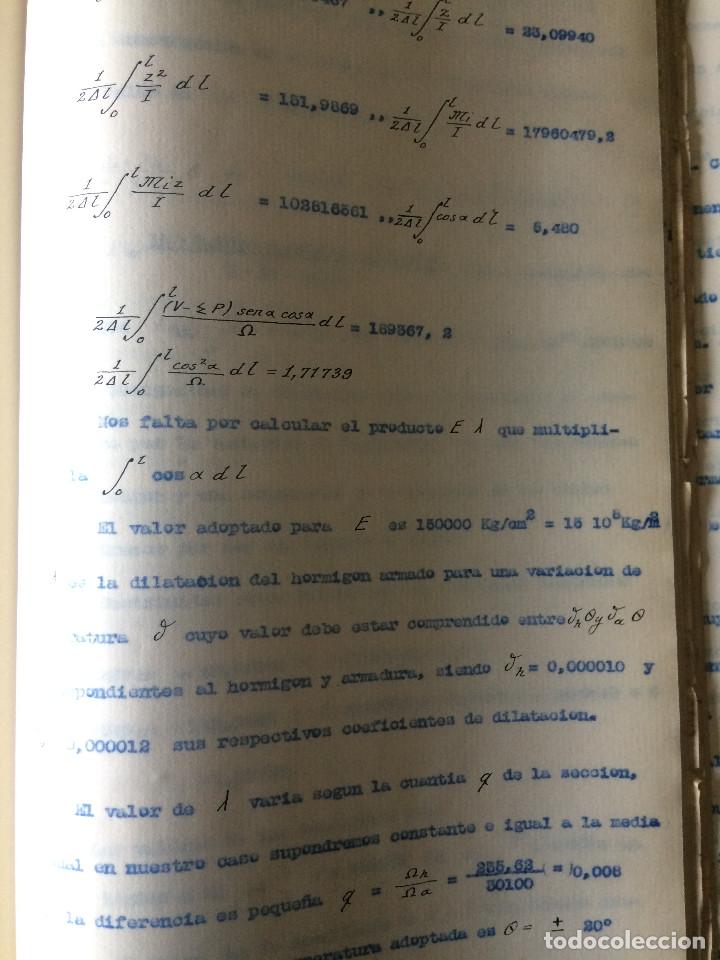 467 ,, 1/2Δl ∫₀ˡ z/I dl = 23,09940
1/2Δl ∫₀ˡ z²/I dl = 151,9869 ,, 1/2Δl ∫₀ˡ Mi/I dl = 17960479,2
1/2Δl ∫₀ˡ Mi z/I dl = 102816561 ,, 1/2Δl ∫₀ˡ cos α dl = 6,480
1/2Δl ∫₀ˡ (V-ΣP) sen α cos α/Ω dl = 189367, 2
1/2Δl ∫₀ˡ cos²α/Ω dl = 1,71739
Nos falta por calcular el producto E λ que multipli-
la ∫₀ˡ cos α dl
El valor adoptado para E es 150000 Kg/cm² = 15 10⁸ Kg/m²
es la dilatacion del hormigon armado para una variacion de
ratura ϑ cuyo valor debe estar comprendido entre ϑₕ θ y ϑₐ θ
pondientes al hormigon y armadura, siendo ϑₕ = 0,000010 y
0,000012 sus respectivos coeficientes de dilatacion.
El valor de λ varia segun la cuantia q de la seccion,
ual en nuestro caso supondremos constante e igual a la media
la diferencia es pequeña q = Ωh/Ωa = 235,62/30100 = 0,008
eratura adoptada es θ = ± 20º
todocoleccion